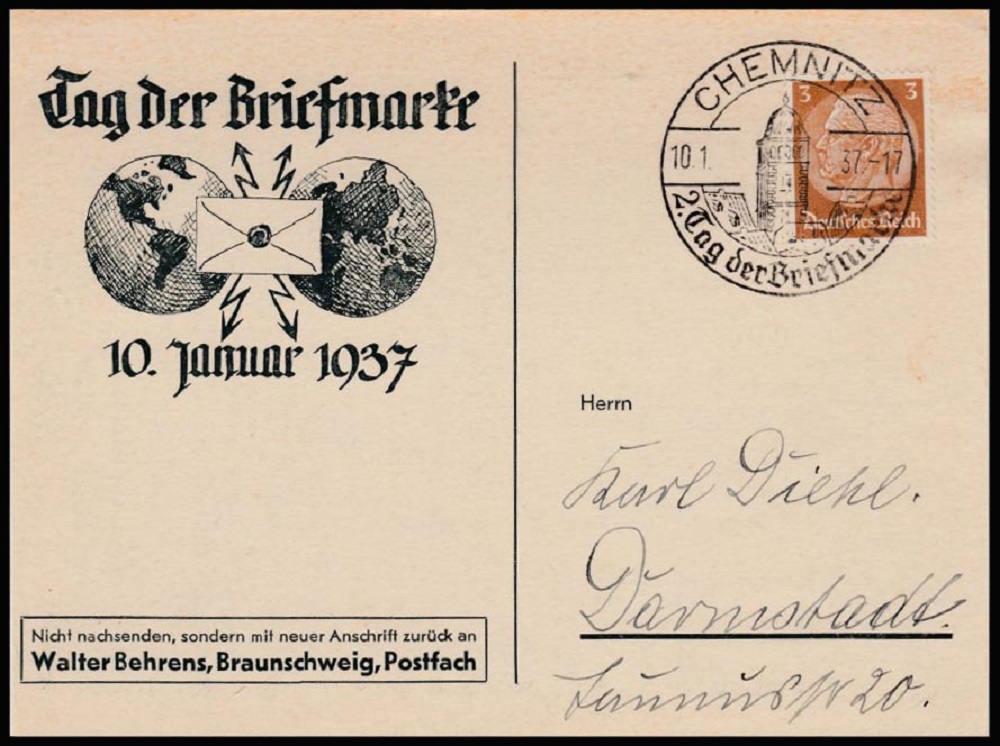 Tag der Briefmarke
10. Januar 1937
CHEMNITZ
10.1. 37.-17
2. Tag der Briefmarke
3 3
Deutsches Reich
Herrn
Karl Diehl.
Darmstadt.
Taunusstr 20.
Nicht nachsenden, sondern mit neuer Anschrift zurück an
Walter Behrens, Braunschweig, Postfach